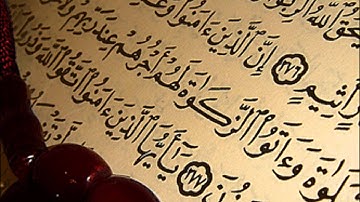 ٱللَّهُ ٱلرِّبَوٰا۟
أَثِيمٍ ٢٧٦ إِنَّ ٱلَّذِينَ ءَامَنُوا۟
وَءَاتَوُا۟ ٱلزَّكَوٰةَ لَهُمْ أَجْرُهُمْ عِندَ رَبِّهِمْ وَلَا
٢٧٧ يَٰٓأَيُّهَا ٱلَّذِينَ ءَامَنُوا۟ ٱتَّقُوا۟ ٱللَّهَ وَذَرُوا۟